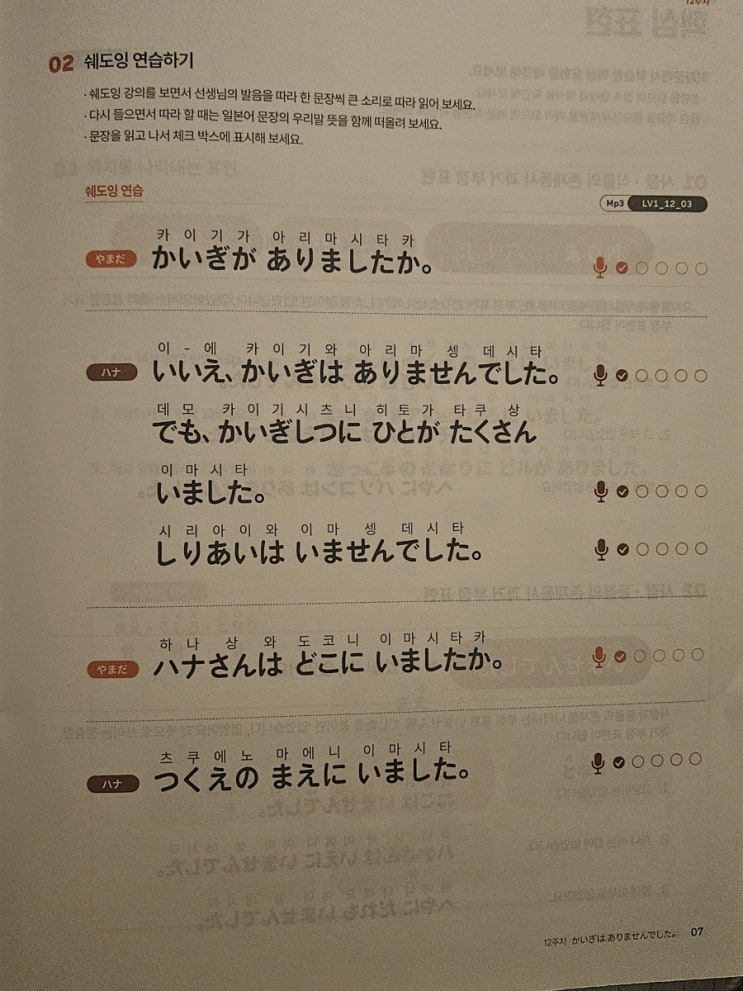 12주차
02 쉐도잉 연습하기
· 쉐도잉 강의를 보면서 선생님의 발음을 따라 한 문장씩 큰 소리로 따라 읽어 보세요.
· 다시 들으면서 따라 할 때는 일본어 문장의 우리말 뜻을 함께 떠올려 보세요.
· 문장을 읽고 나서 체크 박스에 표시해 보세요.
쉐도잉 연습
Mp3 LV1_12_03
카 이 기 가 아 리 마 시 타 카
やまだ かいぎが ありましたか。
이 - 에 카 이 기 와 아 리 마 셍 데 시 타
ハナ いいえ、かいぎは ありませんでした。
데 모 카 이 기 시 츠 니 히 토 가 타 쿠 상
でも、かいぎしつに ひとが たくさん
이 마 시 타
いました。
시 리 아 이 와 이 마 셍 데 시 타
しりあいは いませんでした。
하 나 상 와 도 코 니 이 마 시 타 카
やまだ ハナさんは どこに いましたか。
츠 쿠 에 노 마 에 니 이 마 시 타
ハナ つくえの まえに いました。
12주차 かいぎは ありませんでした。 07